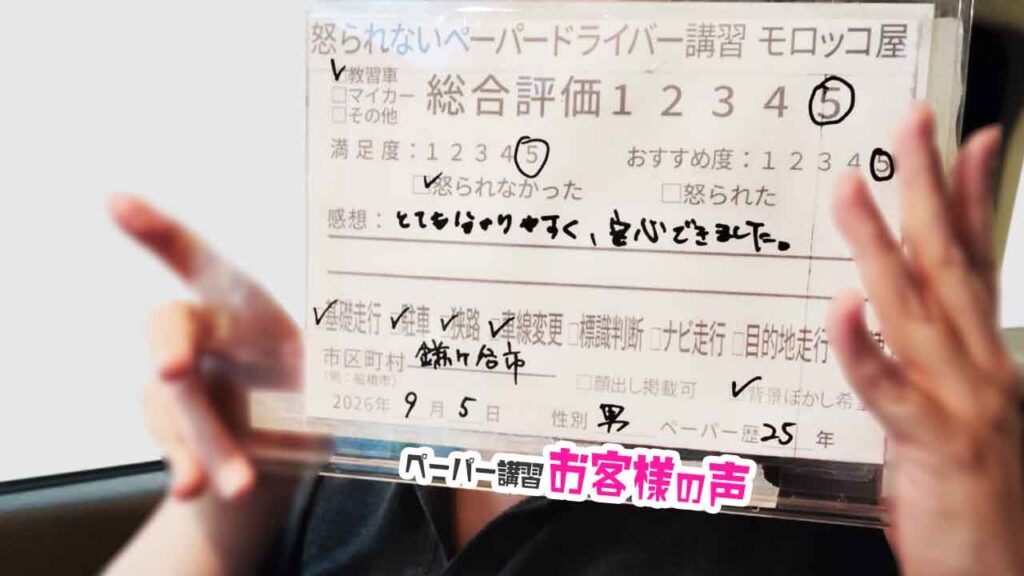 怒られないペーパードライバー講習 モロッコ屋
✓教習車
□マイカー
□その他
総合評価 1 2 3 4 5
満足度：1 2 3 4 5
おすすめ度：1 2 3 4 5
✓怒られなかった □怒られた
感想：とてもわかりやすく、安心できました。
✓基礎走行 ✓駐車 ✓狭路 ✓車線変更 □標識判断 □ナビ走行 □目的地走行
市区町村 鎌ヶ谷市
（例：船橋市）
□顔出し掲載可 ✓背景ぼかし希
2026年 9月 5日 性別 男 ペーパー歴 25年
ペーパー講習 お客様の声